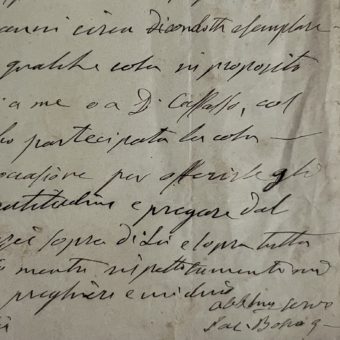 anni circa di condotta esemplare
qualche cosa in proposito
a me o a D. Cafasso, col
partecipata la cosa
occasione per offerirle gli
gratitudine e pregare dal
sopra di Lei e sopra tutta
mentre rispettosamente mi
preghiere e mi dico
servo
Sac. Bosco G